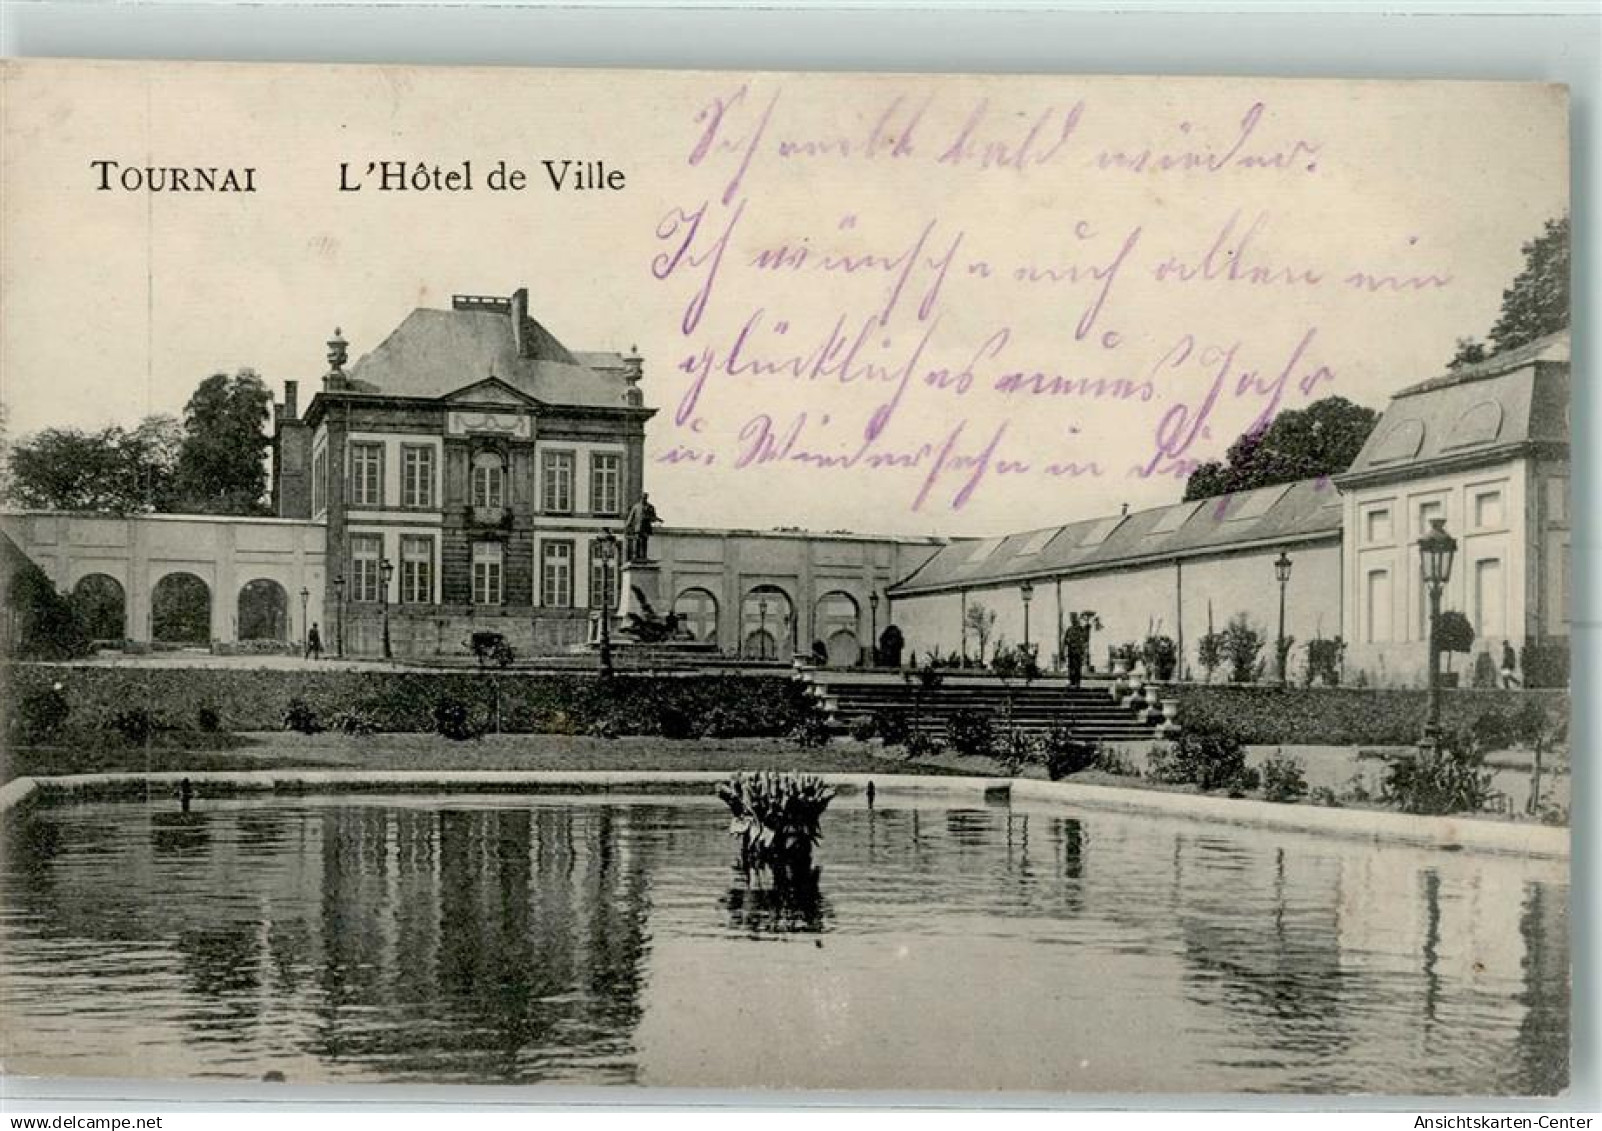 TOURNAI L'Hôtel de Ville
Schreibt bald wieder.
Ich wünsche euch allen ein
glückliches neues Jahr
u. Wiedersehn in
Ansichtskarten-Center